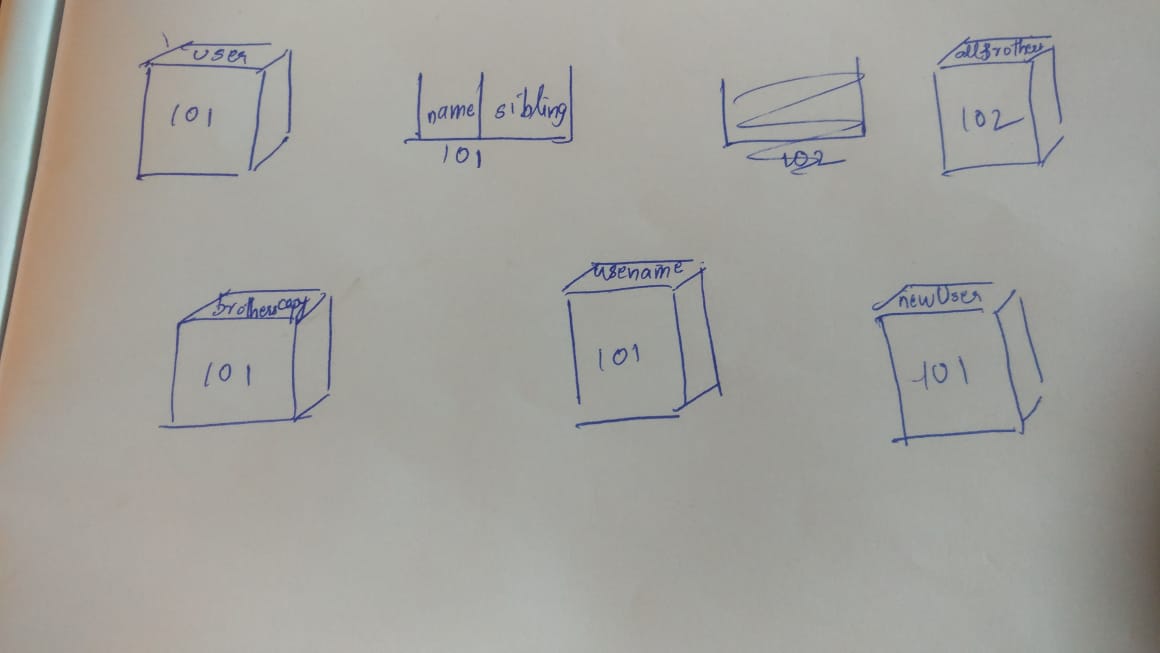 user
101
name sibling
101
102
allBrothers
102
brotherscopy
101
usename
101
newUser
101